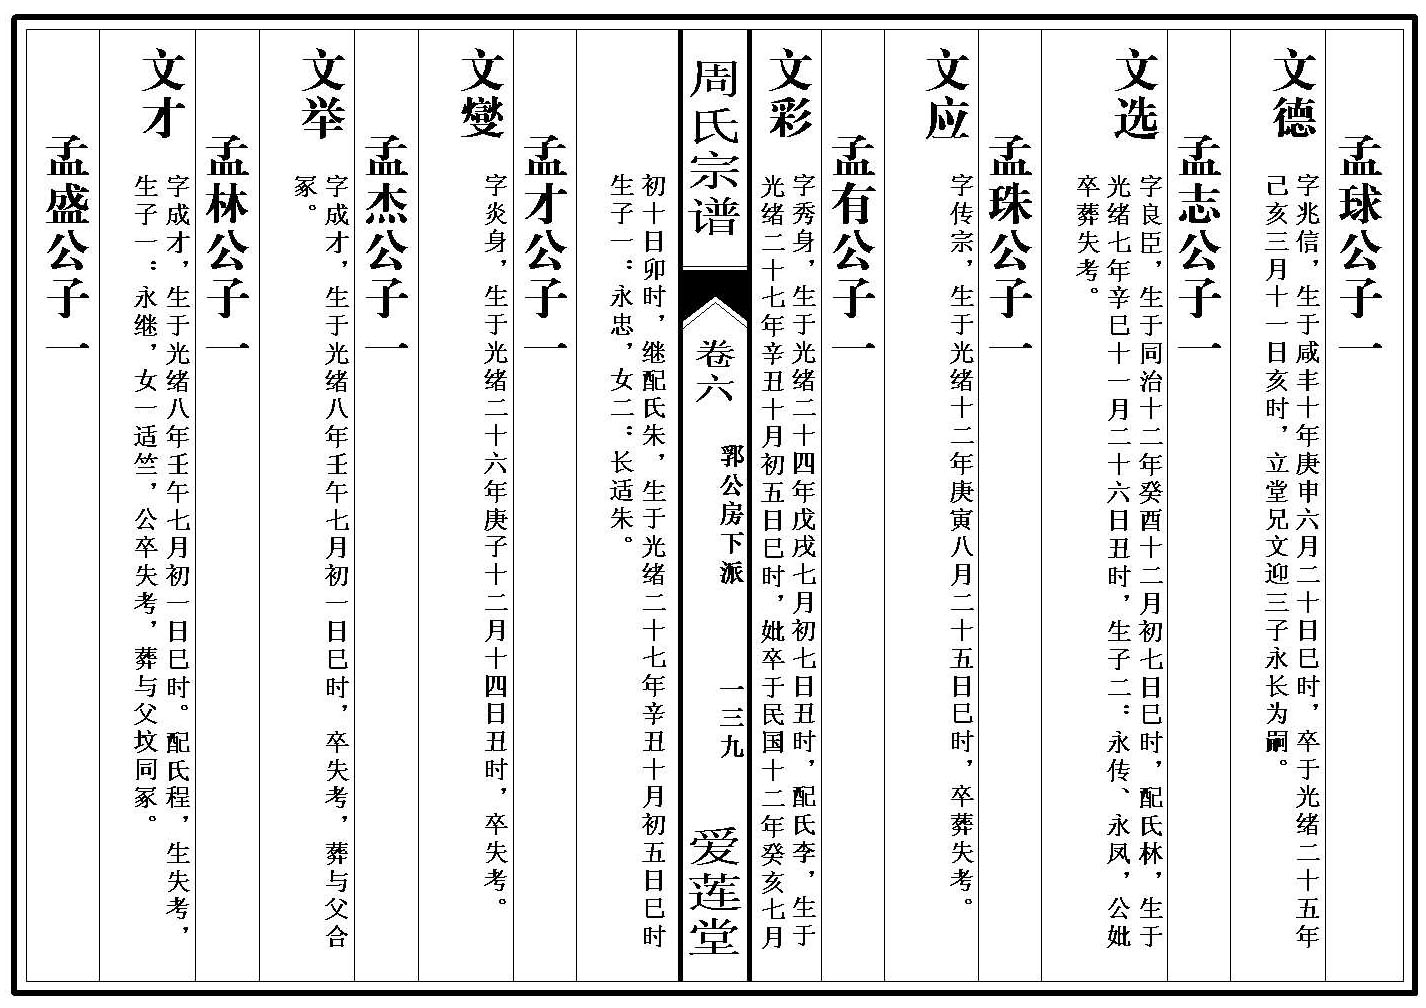 孟球公子一
文德
字兆信，生于咸丰十年庚申六月二十日巳时，卒于光绪二十五年
己亥三月十一日亥时，立堂兄文迎三子永长为嗣。
孟志公子一
文选
字良臣，生于同治十二年癸酉十二月初七日巳时，配氏林，生于
光绪七年辛巳十一月二十六日丑时，生子二：永传、永凤，公妣
卒葬失考。
孟珠公子一
文应
字传宗，生于光绪十二年庚寅八月二十五日巳时，卒葬失考。
孟有公子一
文彩
字秀身，生于光绪二十四年戊戌七月初七日丑时，配氏李，生于
光绪二十七年辛丑十月初五日巳时，妣卒于民国十二年癸亥七月
周氏宗谱
卷六
郭公房下派
一三九
爱莲堂
初十日卯时，继配氏朱，生于光绪二十七年辛丑十月初五日巳时
生子一：永忠，女二：长适朱。
孟才公子一
文燮
字炎身，生于光绪二十六年庚子十二月十四日丑时，卒失考。
孟杰公子一
文举
字成才，生于光绪八年壬午七月初一日巳时，卒失考，葬与父合
冢。
孟林公子一
文才
字成才，生于光绪八年壬午七月初一日巳时。配氏程，生失考，
生子一：永继，女一适竺，公卒失考，葬与父坟同冢。
孟盛公子一